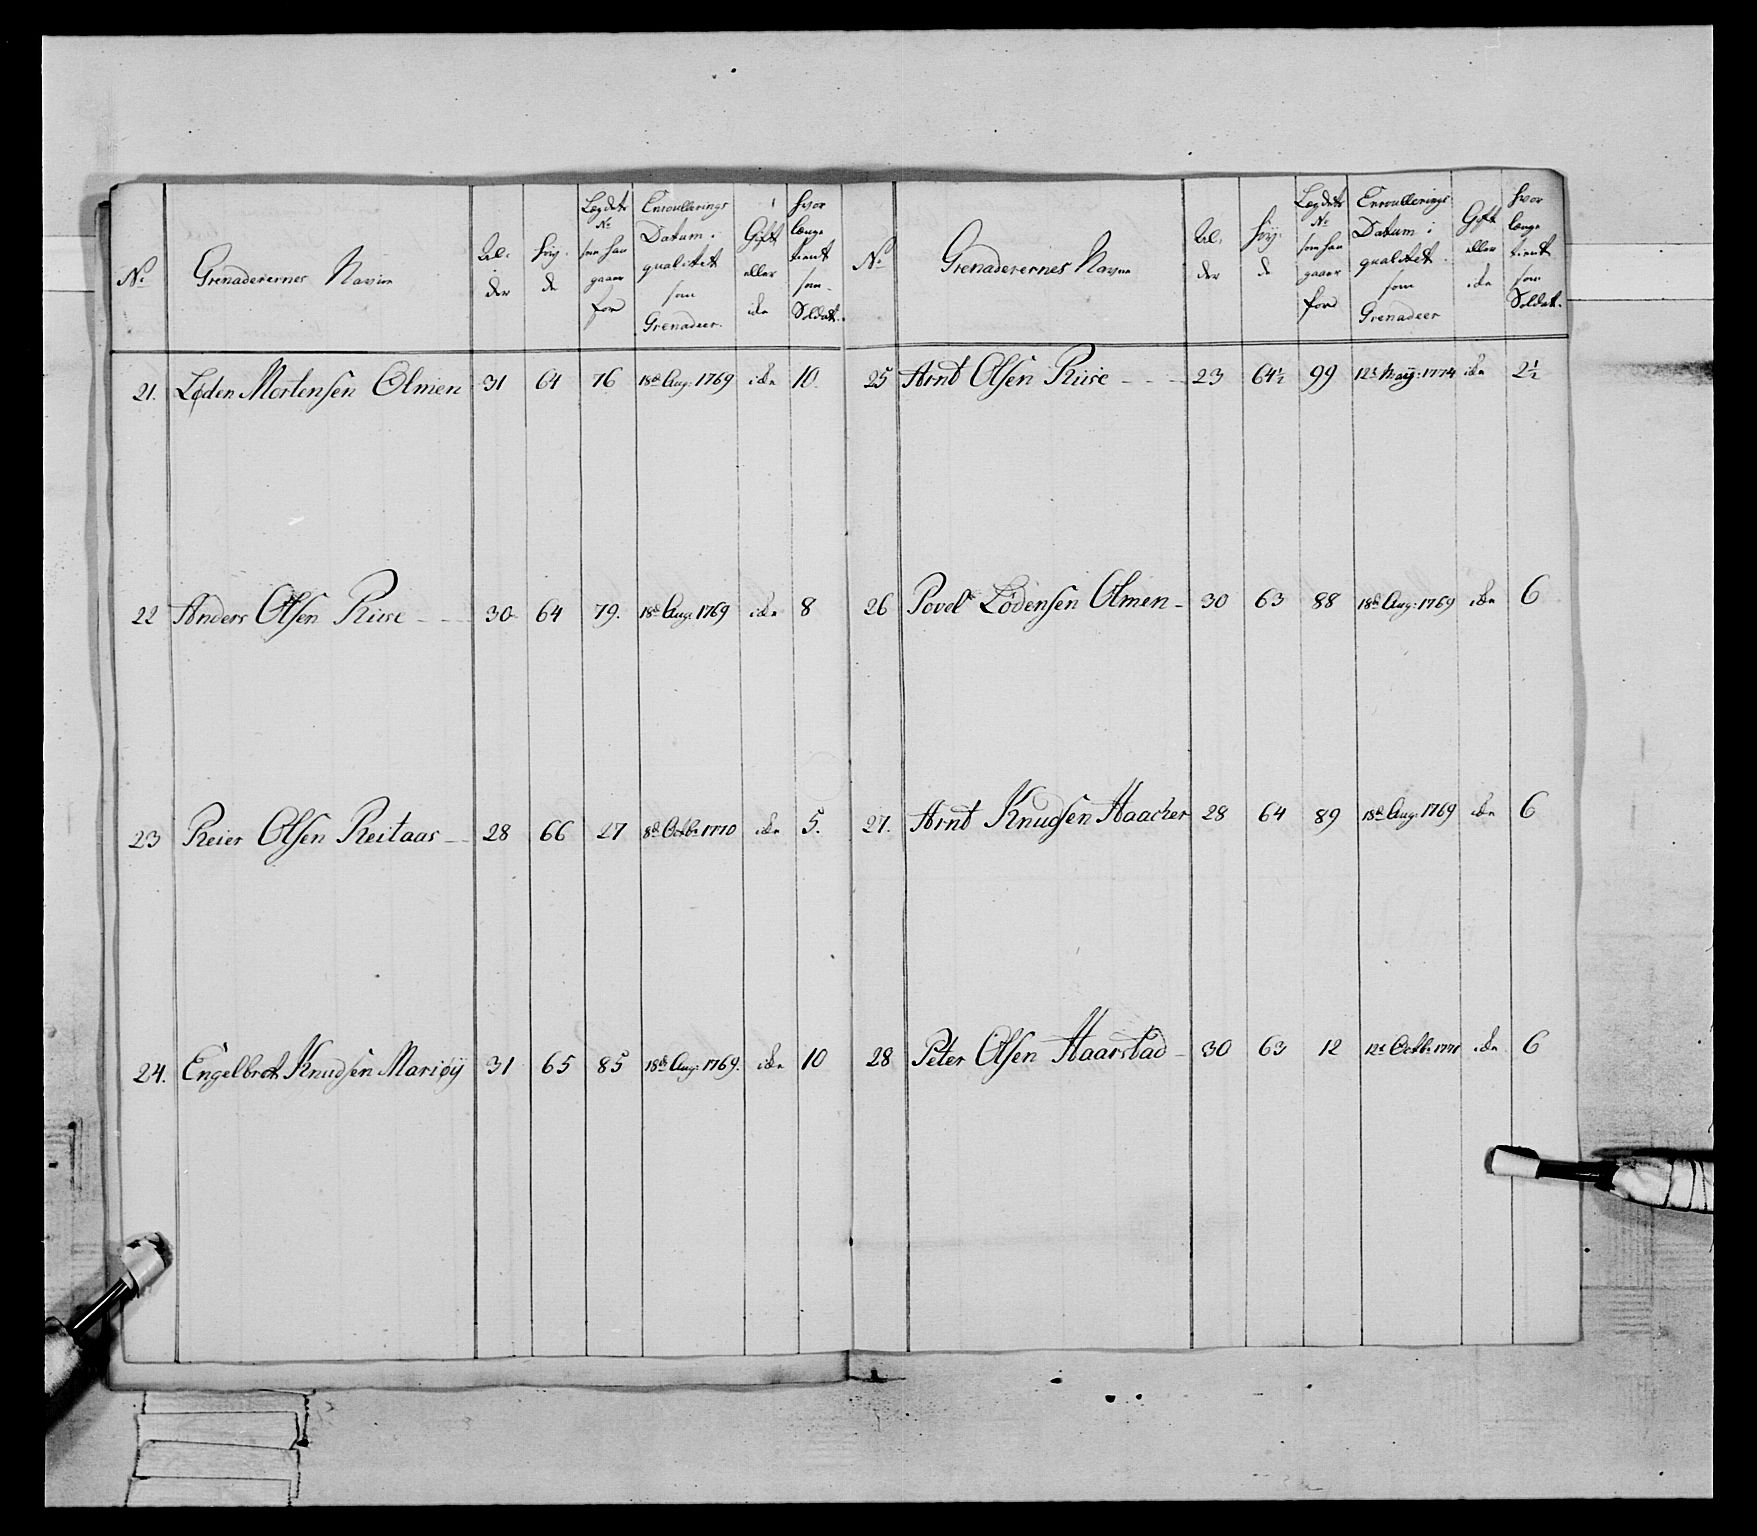 No
Grenaderernes Navne
Al-
der
Høy-
de
Lægdets
No
som han
gaaer
for
Enroullerings
Datum i
qualitet
som
Grenadeer.
Gift
eller
ide
hvor
længe
tient
som
Soldat.
21. Løden Mortensen Olmen 31 64 76 18de Aug: 1769 ide 10.
22 Anders Olsen Riise 30 64 79. 18de Aug: 1769 ide 8
23 Reier Olsen Reitaas 28 66 27 8de Octbr: 1770 ide 5.
24. Engelbret Knudsen Mariøÿ 31 65 85 18de Aug: 1769. ide 10
No
Grenaderernes Navne
Al-
der
Høy-
de
Lægdets
No
som han
gaaer
for
Enroullerings
Datum i
qualitet
som
Grenadeer
Gift
eller
ide
hvor
længe
tient
som
Soldat.
25 Arnt Olsen Riise 23 64½ 99 12te Maÿ: 1774 ide 2½
26 Povel Lødensen Olmen 30 63 88 18de Aug: 1769 ide 6
27. Arnt Knudsen Haacker 28 64 89 18de Aug: 1769 ide 6
28 Peter Olsen Haarstad 30 63 12 12te Octbr: 1771 ide 6